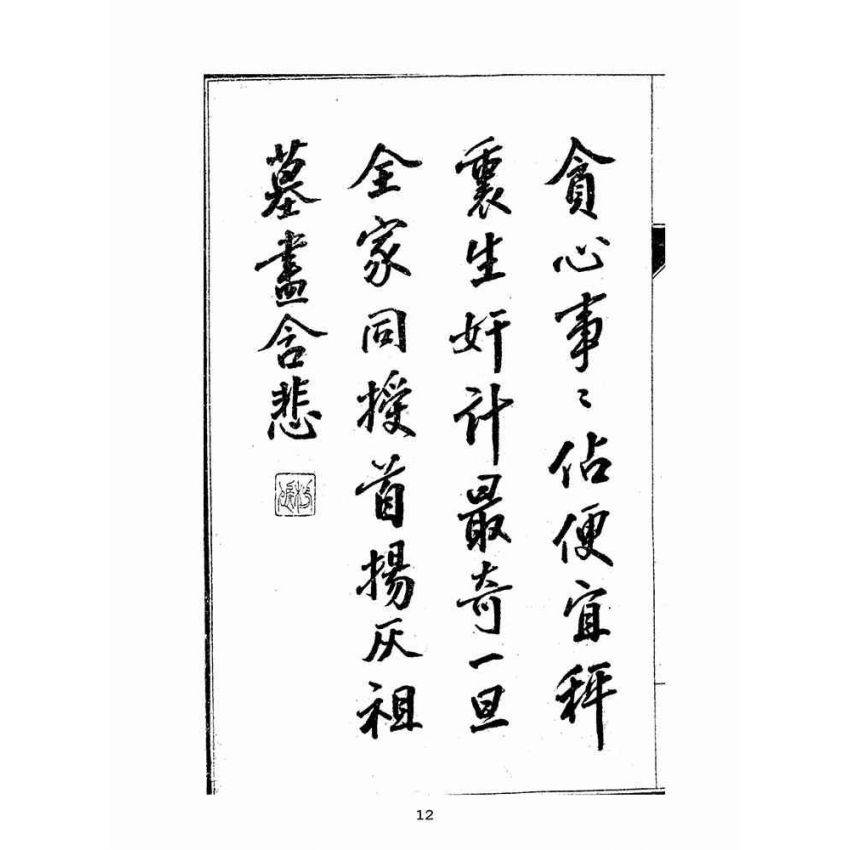 貪心事〻佔便宜秤
裏生奸計最奇一旦
全家同授首揚灰祖
墓盡含悲
12